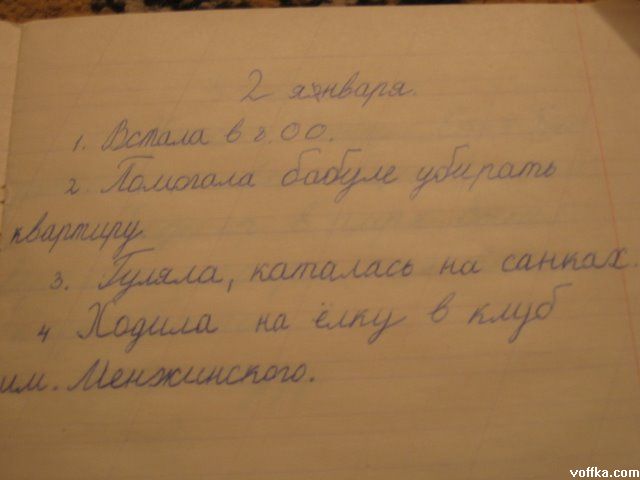 2 января.
1. Встала в 8.00.
2. Помогала бабуле убирать
квартиру
3. Гуляла, каталась на санках.
4 Ходила на ёлку в клуб
им. Менжинского.
voffka.com